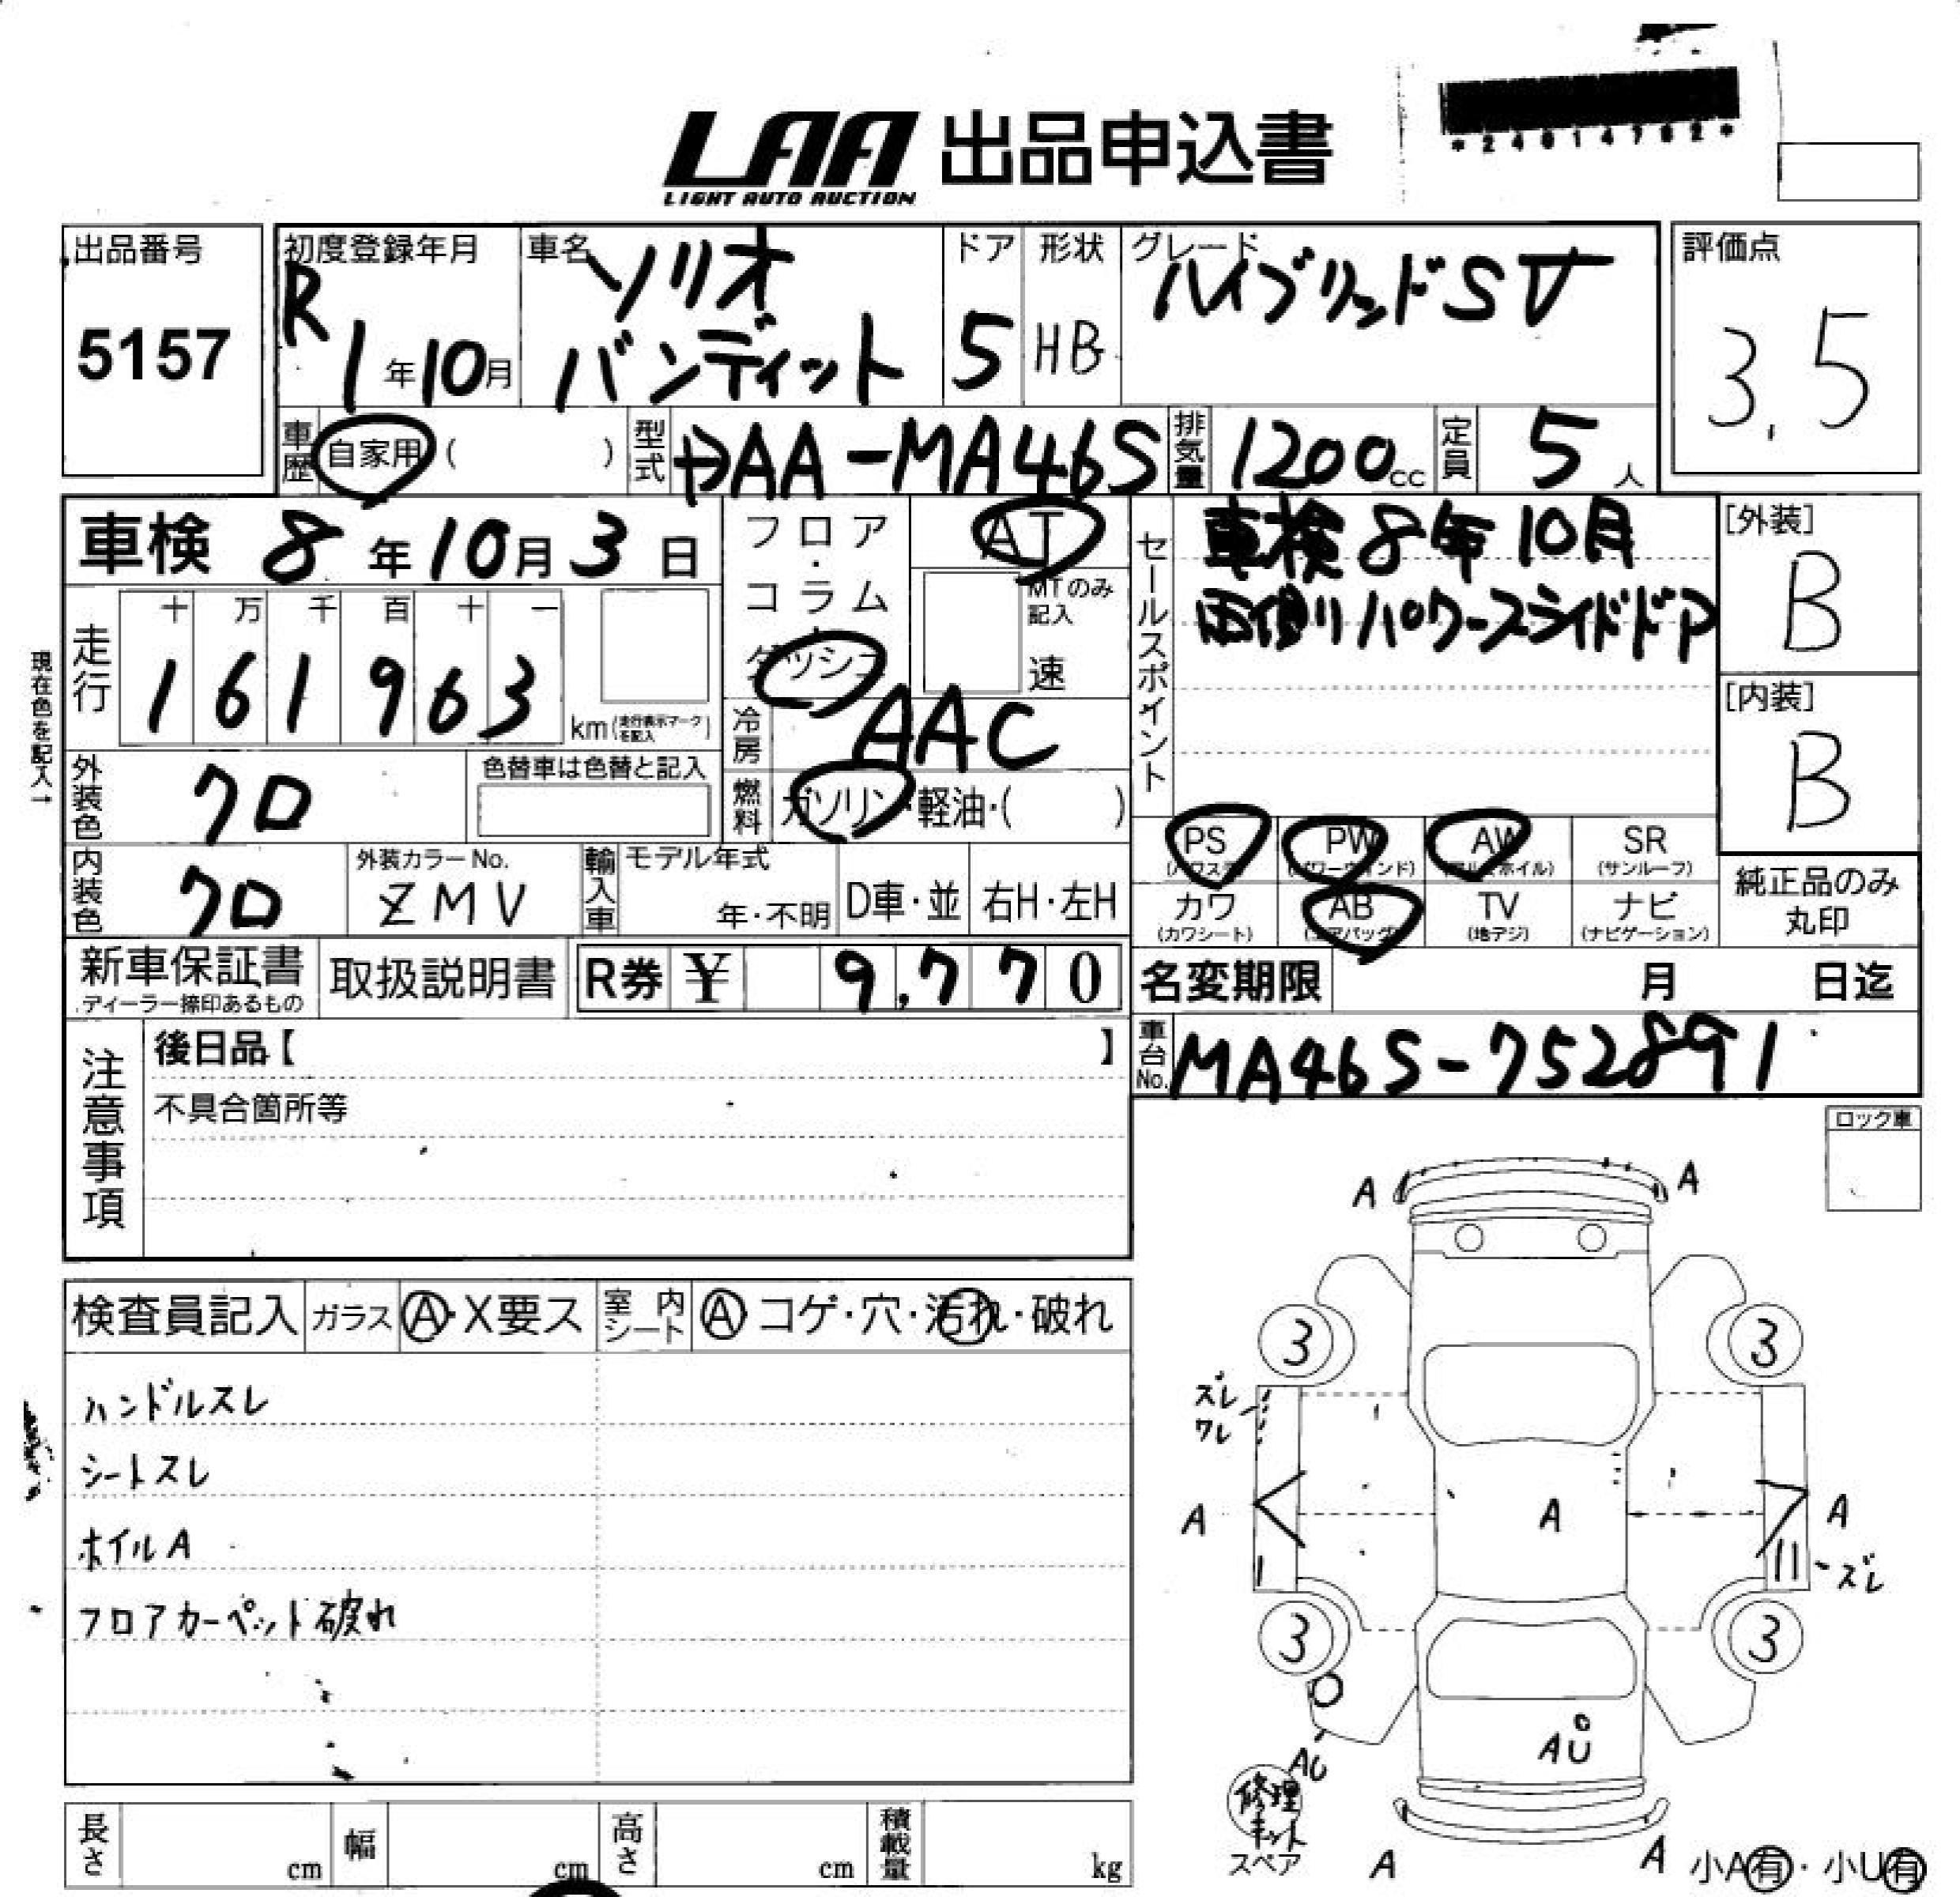 LAA 出品申込書
LIGHT AUTO AUCTION
*24014762*
出品番号
5157
初度登録年月
R1年10月
車名
ソリオ
バンディット
ドア
5
形状
HB
グレード
ハイブリッドSV
評価点
3.5
車歴 自家用( )
型式 DAA-MA46S
排気量 1200cc
定員 5人
車検 8年10月3日
フロア・コラム・ダッシュ
AT
MTのみ記入
速
セールスポイント
車検8年10月
両側パワースライドドア
[外装]
B
[内装]
B
現在色を記入→
走行
十 万 千 百 十 一
1 6 1 9 6 3
km(走行表示マークを記入)
冷房 AAC
外装色 クロ
色替車は色替と記入
燃料 ガソリン・軽油・( )
内装色 クロ
外装カラーNo.
ZMV
輸入車
モデル年式
年・不明
D車・並
右H・左H
PS PW AW SR
(パワステ) (パワーウィンド) (アルミホイル) (サンルーフ)
カワ AB TV ナビ
(カワシート) (エアバッグ) (地デジ) (ナビゲーション)
純正品のみ
丸印
新車保証書
ディーラー捺印あるもの
取扱説明書
R券 ¥ 9,770
名変期限 月 日迄
車台No. MA46S-752891
注意事項
後日品【 】
不具合箇所等
ロック車
検査員記入 ガラス A・X要ス 室内シート A コゲ・穴・汚れ・破れ
ハンドルスレ
シートスレ
ホイルA
フロアカーペット破れ
A A
3 3
ズレ
ワレ
A A A
ズレ
3 3
AU
AU
修理
キット
スペア
A A
小A有・小U有
長さ cm 幅 cm 高さ cm 積載量 kg